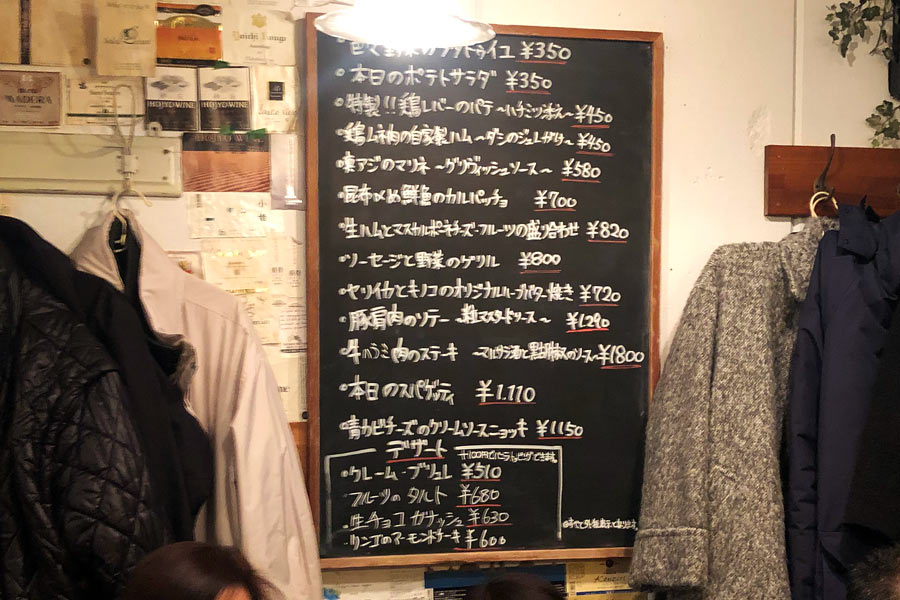 MADERA
HOJYO WINE
HOJYO WINE
Yoichi
色々野菜のラタトゥイユ ¥350
・本日のポテトサラダ ¥350
・特製!!鶏レバーのパテ〜ハチミツ添え〜¥450
・鶏ムネ肉の自家製ハム 〜¥450
アジのマリネ 〜ソース〜 ¥580
・昆布〆め鮮魚のカルパッチョ ¥700
・生ハムとマスカルポーネチーズ・フルーツの盛り合わせ ¥820
・ソーセージと野菜のグリル ¥800
・ヤリイカとキノコのオリジナルハーブバター焼き ¥720
・豚肩肉のソテー 〜粒マスタードソース〜 ¥1.290
・牛ハラミ肉のステーキ 〜マルサラ酒と黒胡椒のソース〜¥1800
・本日のスパゲッティ ¥1.110
・青カビチーズのクリームソースニョッキ ¥1150
デザート
+100円でバニラ
・クレーム・ブリュレ ¥510
・フルーツの タルト ¥680
・生チョコ ガナッシュ ¥630
・リンゴのアーモンドケーキ ¥600